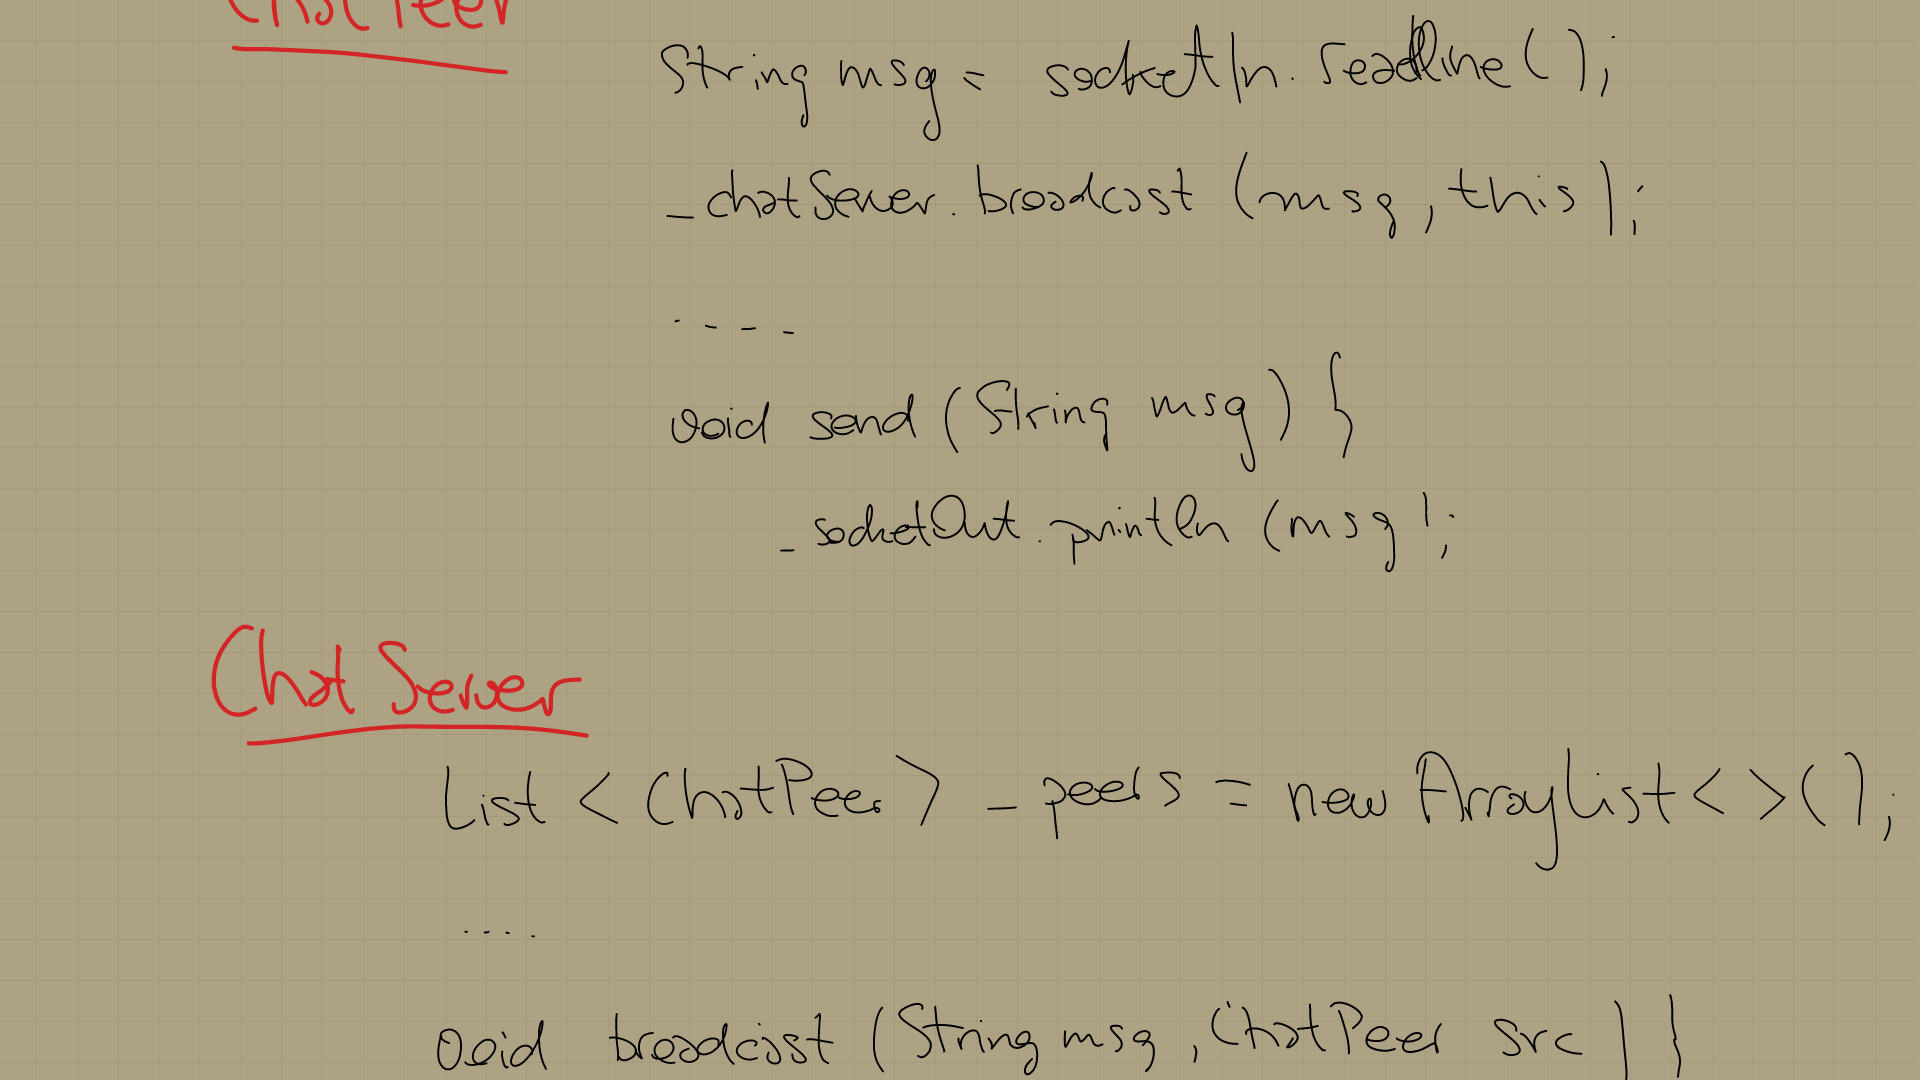 ChatPeer
String msg = socketIn.readline();
_chatServer.broadcast (msg, this);
....
void send (String msg) {
_socketOut.println (msg);
Chat Server
List < ChatPeer > _peers = new ArrayList < > ();
....
void broadcast (String msg, ChatPeer src) {